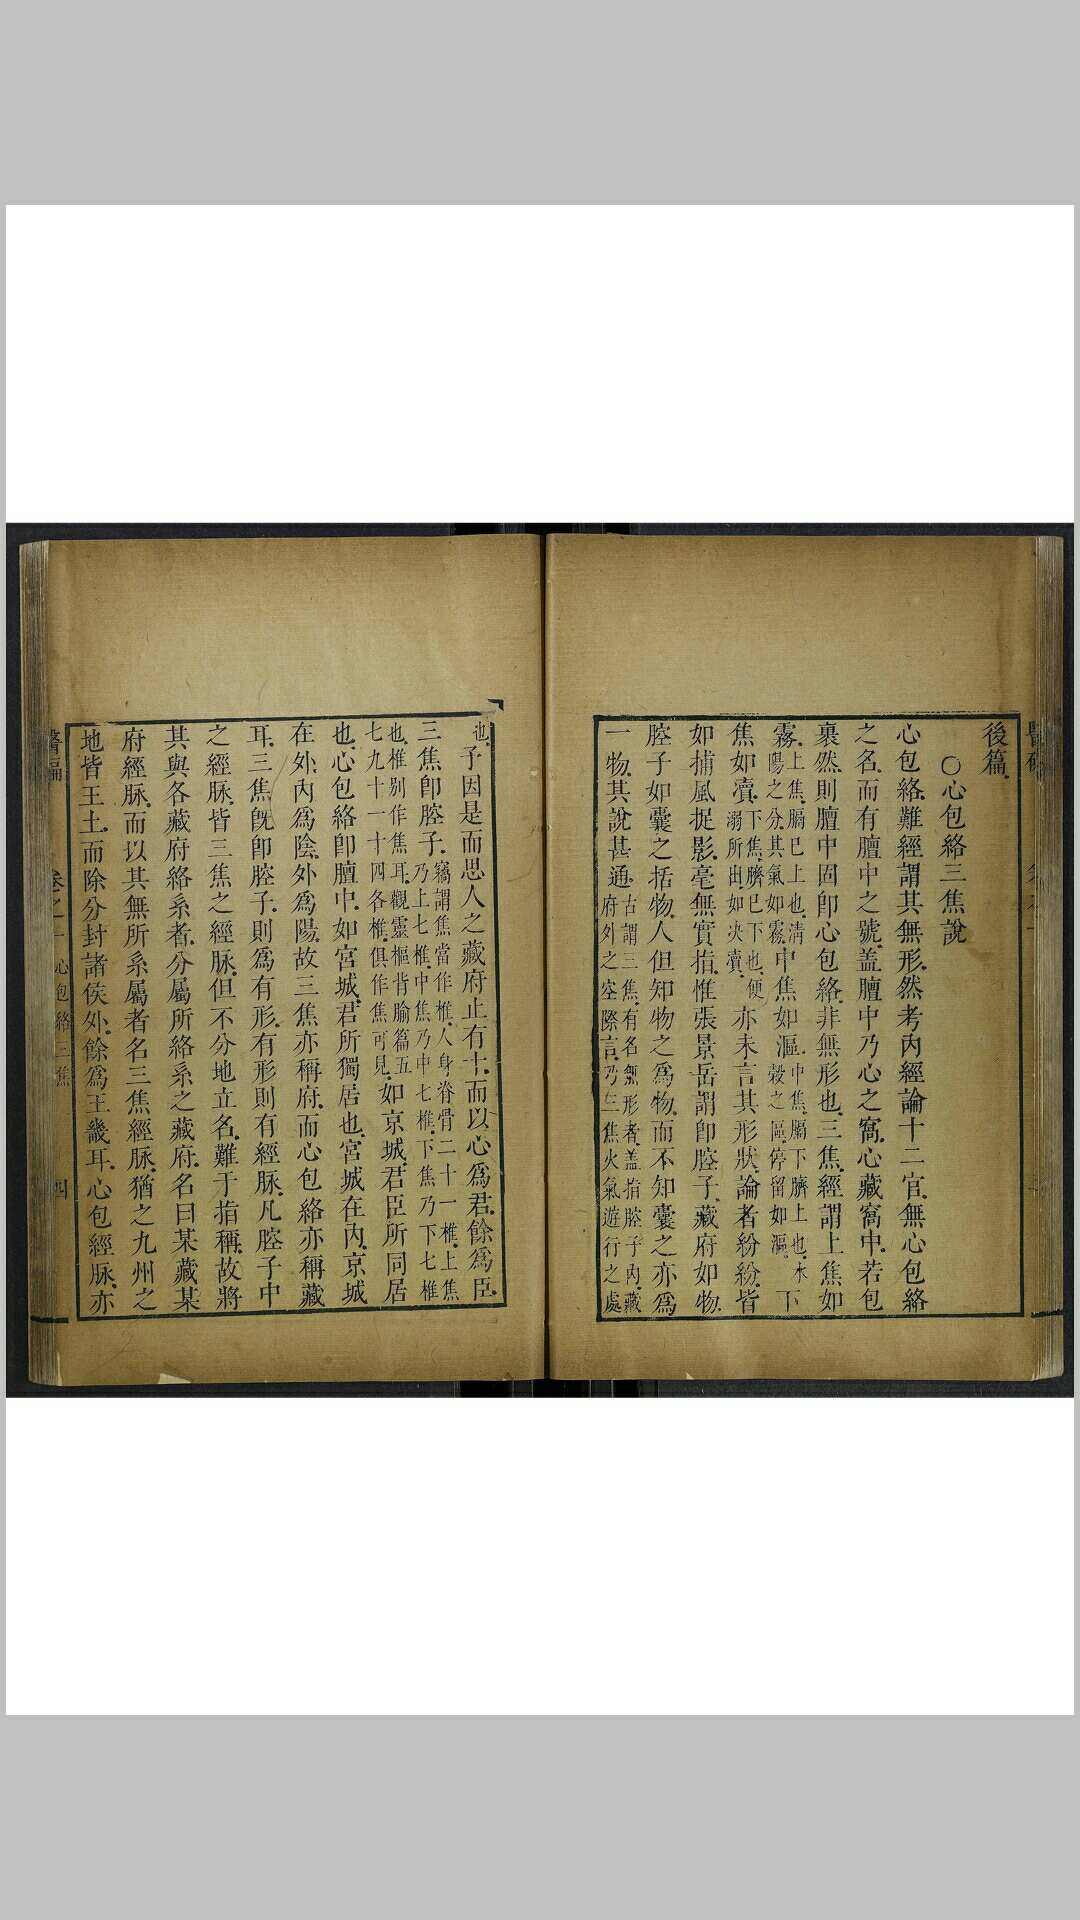 後篇
○心包絡三焦說
心包絡難經謂其無形然考內經論十二官無心包絡
之名而有膻中之號蓋膻中乃心之窩心藏窩中若包
裹然則膻中固卽心包絡非無形也三焦經謂上焦如
霧上焦膈已上也清陽之分其氣如霧中焦如漚中焦膈下臍上也水穀之區停留如漚下
焦如瀆下焦臍已下也便溺所由如決瀆亦未言其形狀論者紛紛皆
如捕風捉影毫無實指惟張景岳謂卽腔子藏府如物
腔子如囊之括物人但知物之爲物而不知囊之亦爲
一物其說甚通古謂三焦有名無形者蓋指腔子內藏府外之空際言乃三焦火氣遊行之處
也子因是而思人之藏府止有十而以心爲君餘爲臣
三焦卽腔子竊謂焦當作椎人身脊骨二十一椎上焦乃上七椎中焦乃中七椎下焦乃下七椎
也椎別作焦耳觀靈樞背腧篇五七九十一十四各椎俱作焦可見如京城君臣所同居
也心包絡卽膻中如宮城君所獨居也宮城在內京城
在外內爲陰外爲陽故三焦亦稱府而心包絡亦稱藏
耳三焦旣卽腔子則爲有形有形則有經脉凡腔子中
之經脉皆三焦之經脉但不分地立名難于指稱故將
其與各藏府絡系者分屬所絡系之藏府名曰某藏某
府經脉而以其無所系屬者名三焦經脉猶之九州之
地皆王土而除分封諸侯外餘爲王畿耳心包經脉亦
卷之一 心包絡三焦 四